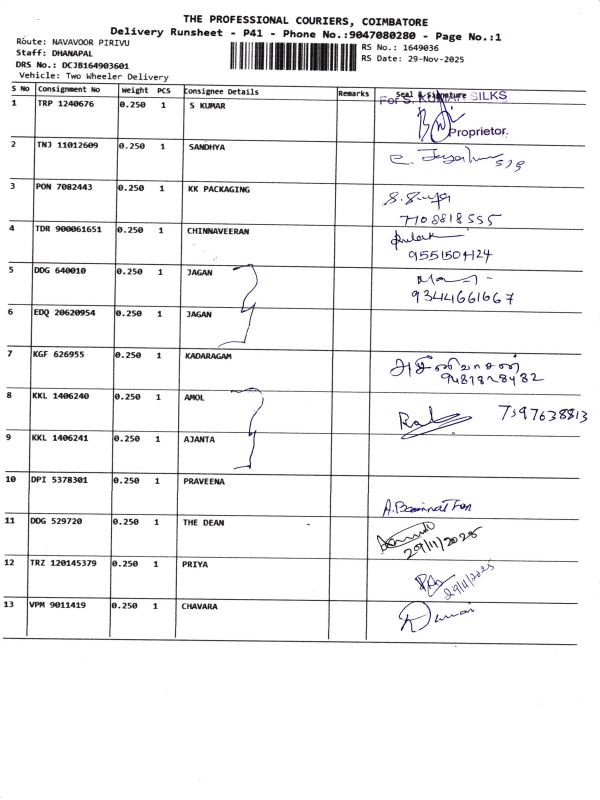 THE PROFESSIONAL COURIERS, COIMBATORE
Delivery Runsheet - P41 - Phone No.:9047080280 - Page No.:1
Route: NAVAVOOR PIRIVU
RS No.: 1649036
Staff: DHANAPAL
RS Date: 29-Nov-2025
DRS No.: DCJB164903601
Vehicle: Two Wheeler Delivery
S No Consignment No Weight PCS Consignee Details Remarks Seal & Signature
1 TRP 1240676 0.250 1 S KUMAR For S. KUMAR SILKS
Proprietor.
2 TNJ 11012609 0.250 1 SANDHYA
3 PON 7082443 0.250 1 KK PACKAGING
7708818555
4 TDR 900061651 0.250 1 CHINNAVEERAN
9551504124
5 DDG 640010 0.250 1 JAGAN
93441661667
6 EDQ 20620954 0.250 1 JAGAN
7 KGF 626955 0.250 1 KADARAGAM
8 KKL 1406240 0.250 1 AMOL 7397638813
9 KKL 1406241 0.250 1 AJANTA
10 DPI 5378301 0.250 1 PRAVEENA
11 DDG 529720 0.250 1 THE DEAN
29/11/2025
12 TRZ 120145379 0.250 1 PRIYA
29/11/2025
13 VPM 9011419 0.250 1 CHAVARA